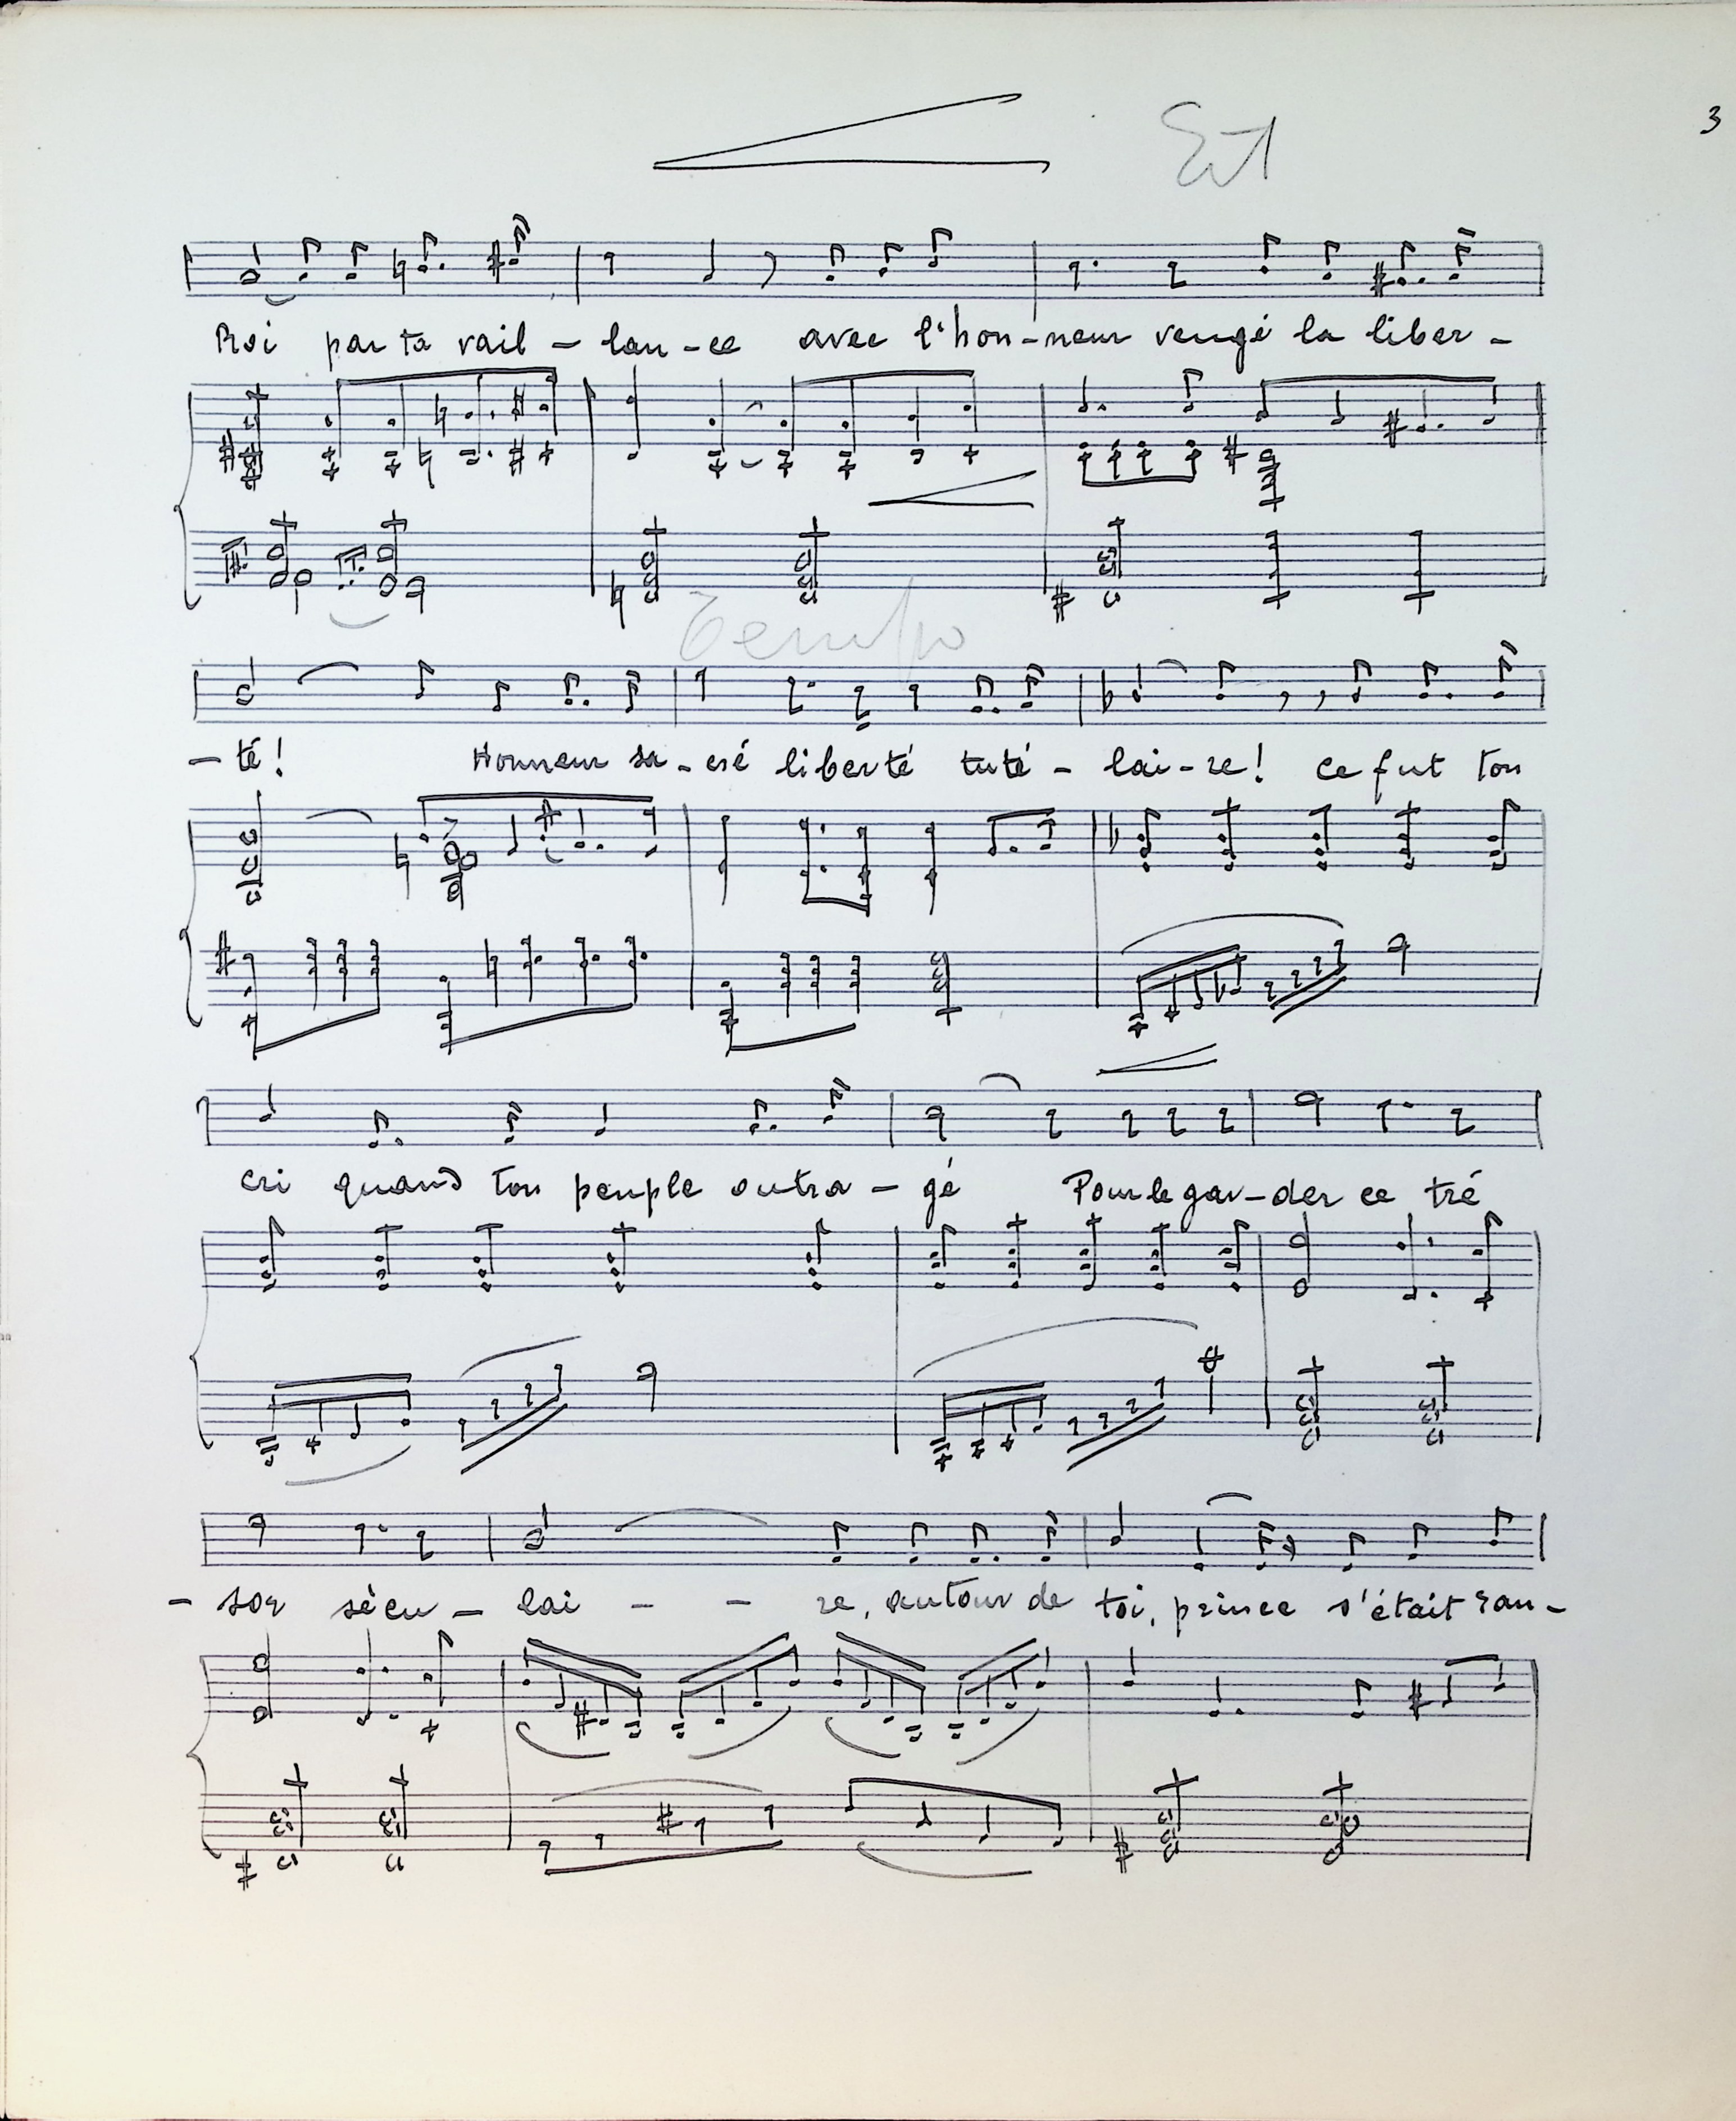 3
Roi par ta vail - lan - ce avec l'hon - neur vengé la liber -
Tempo
- té! Honneur sa - cré liberté tuté - lai - re! ce fut ton
cri quand ton peuple outra - gé Pour le gar - der ce tré
- sor sècu - lai - - re, autour de toi, prince s'était ran -